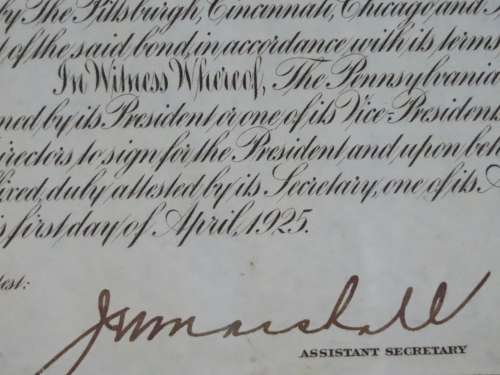 by The Pittsburgh, Cincinnati, Chicago and
of the said bond in accordance with its terms
In Witness Whereof, The Pennsylvania
ned by its President or one of its Vice-Presidents
irectors to sign for the President and upon beh
fixed, duly attested by its Secretary, one of its A
is first day of April, 1925.
test:
Marshall
ASSISTANT SECRETARY